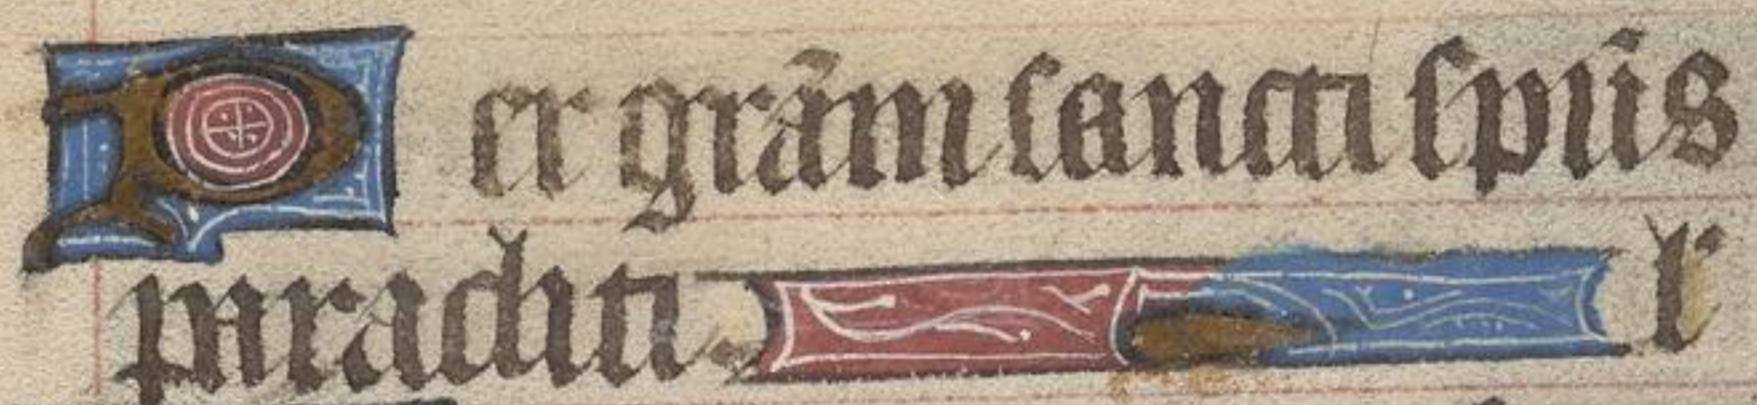 Per grãm sancti spũs
paracliti.